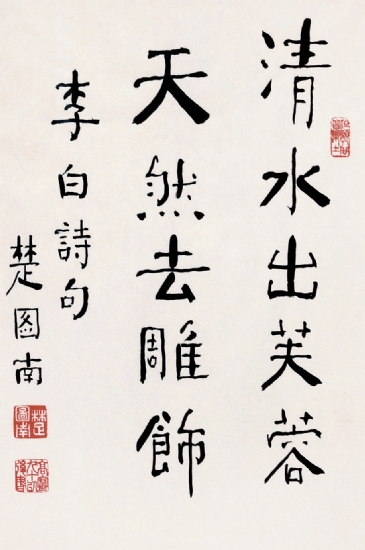 清水出芙蓉
天然去雕飾
李白詩句
楚图南
楚圖南